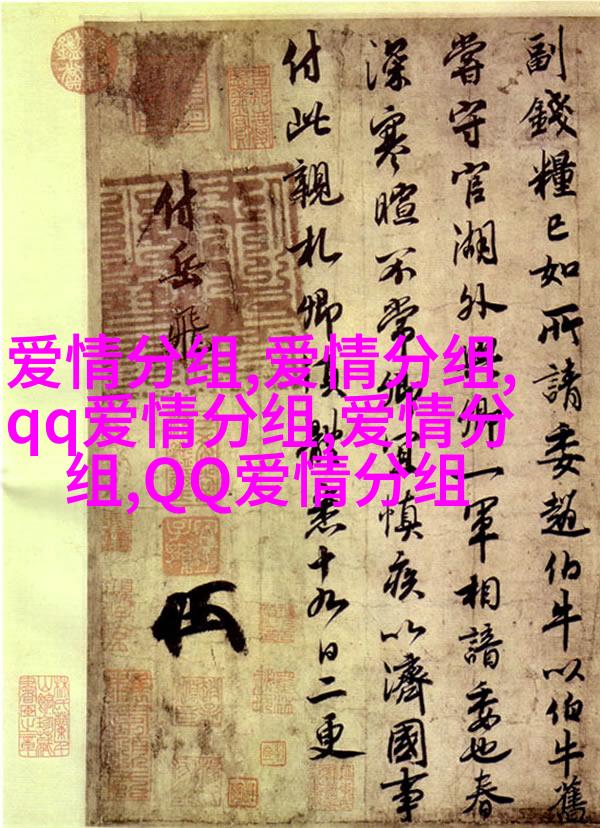 副錢糧已如所請委趙伯牛以伯牛舊
嘗守官湖外與卿一軍相諳委也春
深寒暄不常卿宜慎疾以濟國事
付此親札卿須體悉十九日二更
付岳飛
爱情分组,爱情分组,
qq爱情分组,爱情分
组,QQ爱情分组